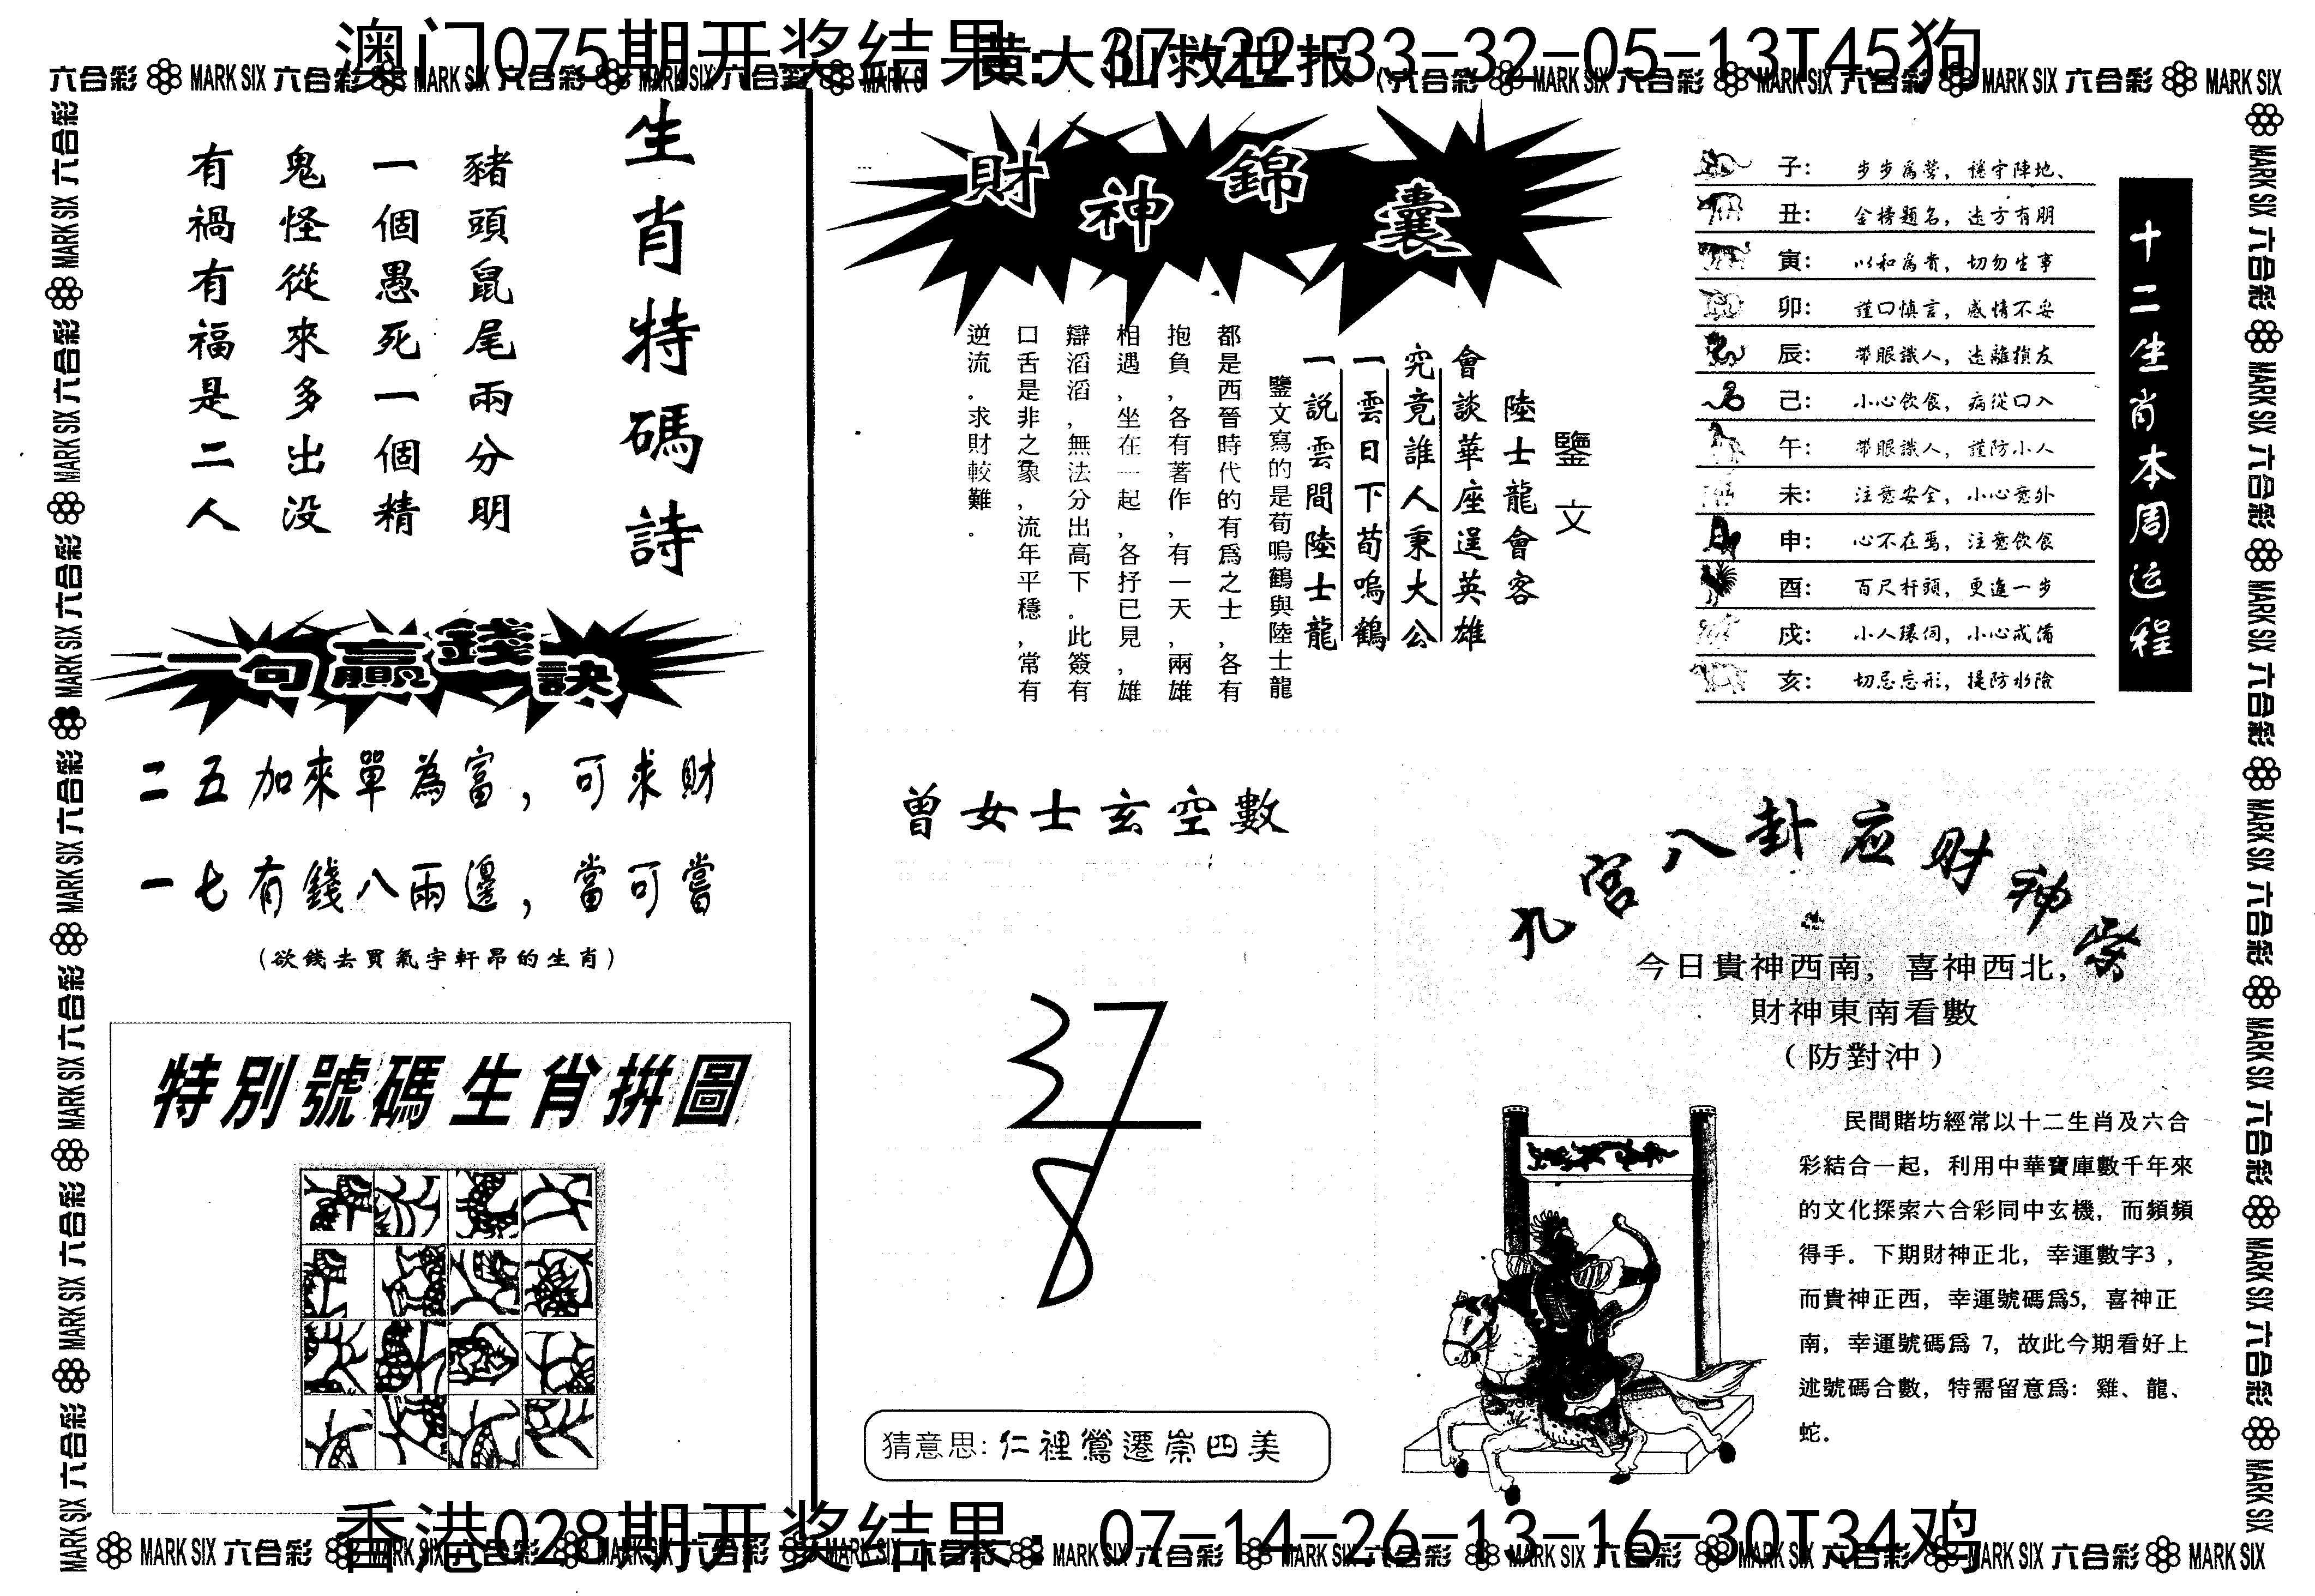 澳门075期开奖结果：37-22-33-32-05-13T45狗
黄大仙救世报
六合彩 MARK SIX 六合彩 MARK SIX 六合彩 MARK SIX 六合彩 MARK SIX 六合彩 MARK SIX 六合彩 MARK SIX 六合彩 MARK SIX 六合彩 MARK SIX
生肖特碼詩
豬頭鼠尾兩分明
一個愚死一個精
鬼怪從來多出没
有禍有福是二人
一句贏錢訣
二五加來單為富，可求財
一七有錢八兩邊，當可嘗
(欲錢去買氣宇軒昂的生肖)
特別號碼生肖拼圖
財神錦囊
鑒文
陸士龍會客
會談華座逞英雄
究竟誰人秉大公
一雲日下荀鳴鶴
一説雲間陸士龍
鑒文寫的是荀鳴鶴與陸士龍
都是西晉時代的有爲之士,各有
抱負,各有著作,有一天,兩雄
相遇,坐在一起,各抒已見,雄
辯滔滔,無法分出高下。此簽有
口舌是非之象,流年平穩,常有
逆流。求財較難.
十二生肖本周运程
子：步步為營，穩守陣地、
丑：金榜題名，遠方有朋
寅：以和為貴，切勿生事
卯：謹口慎言，感情不妥
辰：帶眼識人，遠離損友
己：小心飲食，病從口入
午：帶眼識人，謹防小人
未：注意安全，小心意外
申：心不在焉，注意飲食
酉：百尺杆頭，更進一步
戍：小人環伺，小心戒備
亥：切忌忘形，提防水險
曾女士玄空數
37
8
猜意思:仁裡鶯遷崇四美
九宮八卦应财神
今日貴神西南，喜神西北，
財神東南看數
（防對沖）
民間賭坊經常以十二生肖及六合
彩結合一起，利用中華寶庫數千年來
的文化探索六合彩同中玄機，而頻頻
得手．下期財神正北，幸運數字3，
而貴神正西，幸運號碼爲5，喜神正
南，幸運號碼爲 7，故此今期看好上
述號碼合數，特需留意爲：雞、龍、
蛇．
香港028期开奖结果：07-14-26-13-16-30T34鸡
MARK SIX 六合彩 MARK SIX 六合彩 MARK SIX 六合彩 MARK SIX 六合彩 MARK SIX 六合彩 MARK SIX 六合彩 MARK SIX 六合彩 MARK SIX 六合彩 MARK SIX 六合彩 MARK SIX